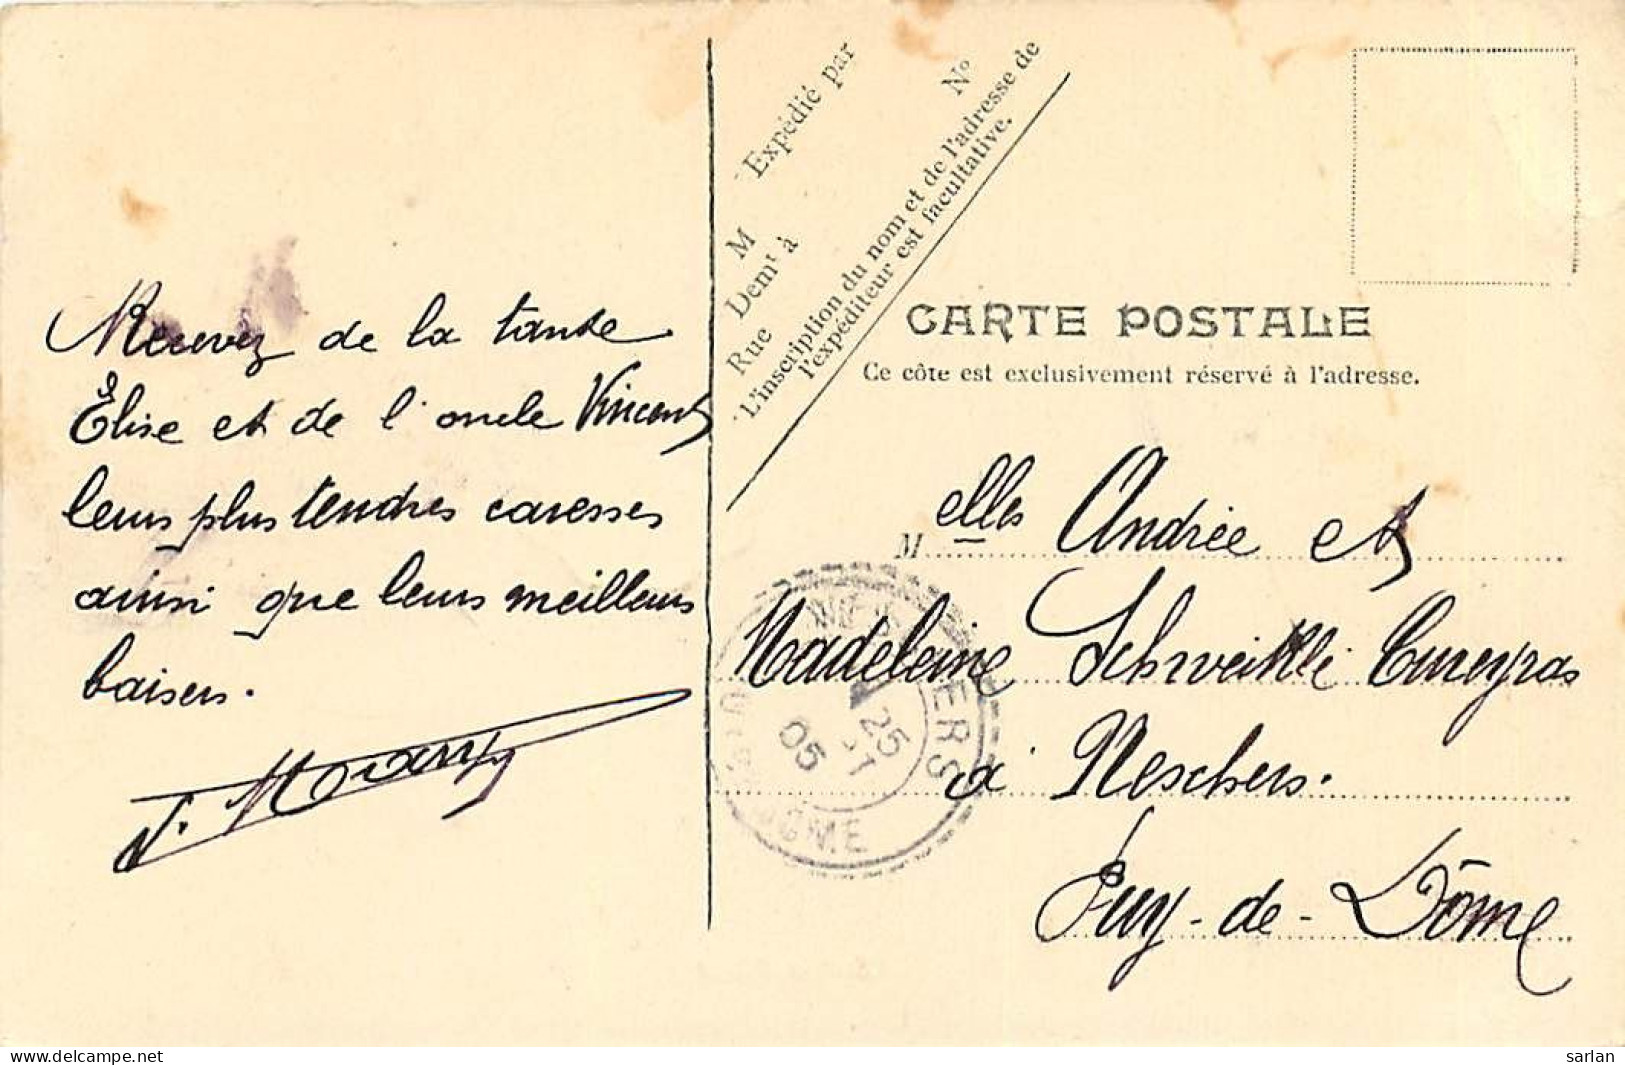 Recevez de la tante
Élise et de l'oncle Vincent
leurs plus tendres caresses
ainsi que leurs meilleurs
baisers.
Expédié par
M
Demt à
Rue
N°
L'inscription du nom et de l'adresse de
l'expéditeur est facultative.
CARTE POSTALE
Ce côté est exclusivement réservé à l'adresse.
Melles Andrée et
Madeleine Cureyras
à Neschers.
Puy-de-Dôme
NESCHERS
25
05
DOME
delcampe.net
sarlan